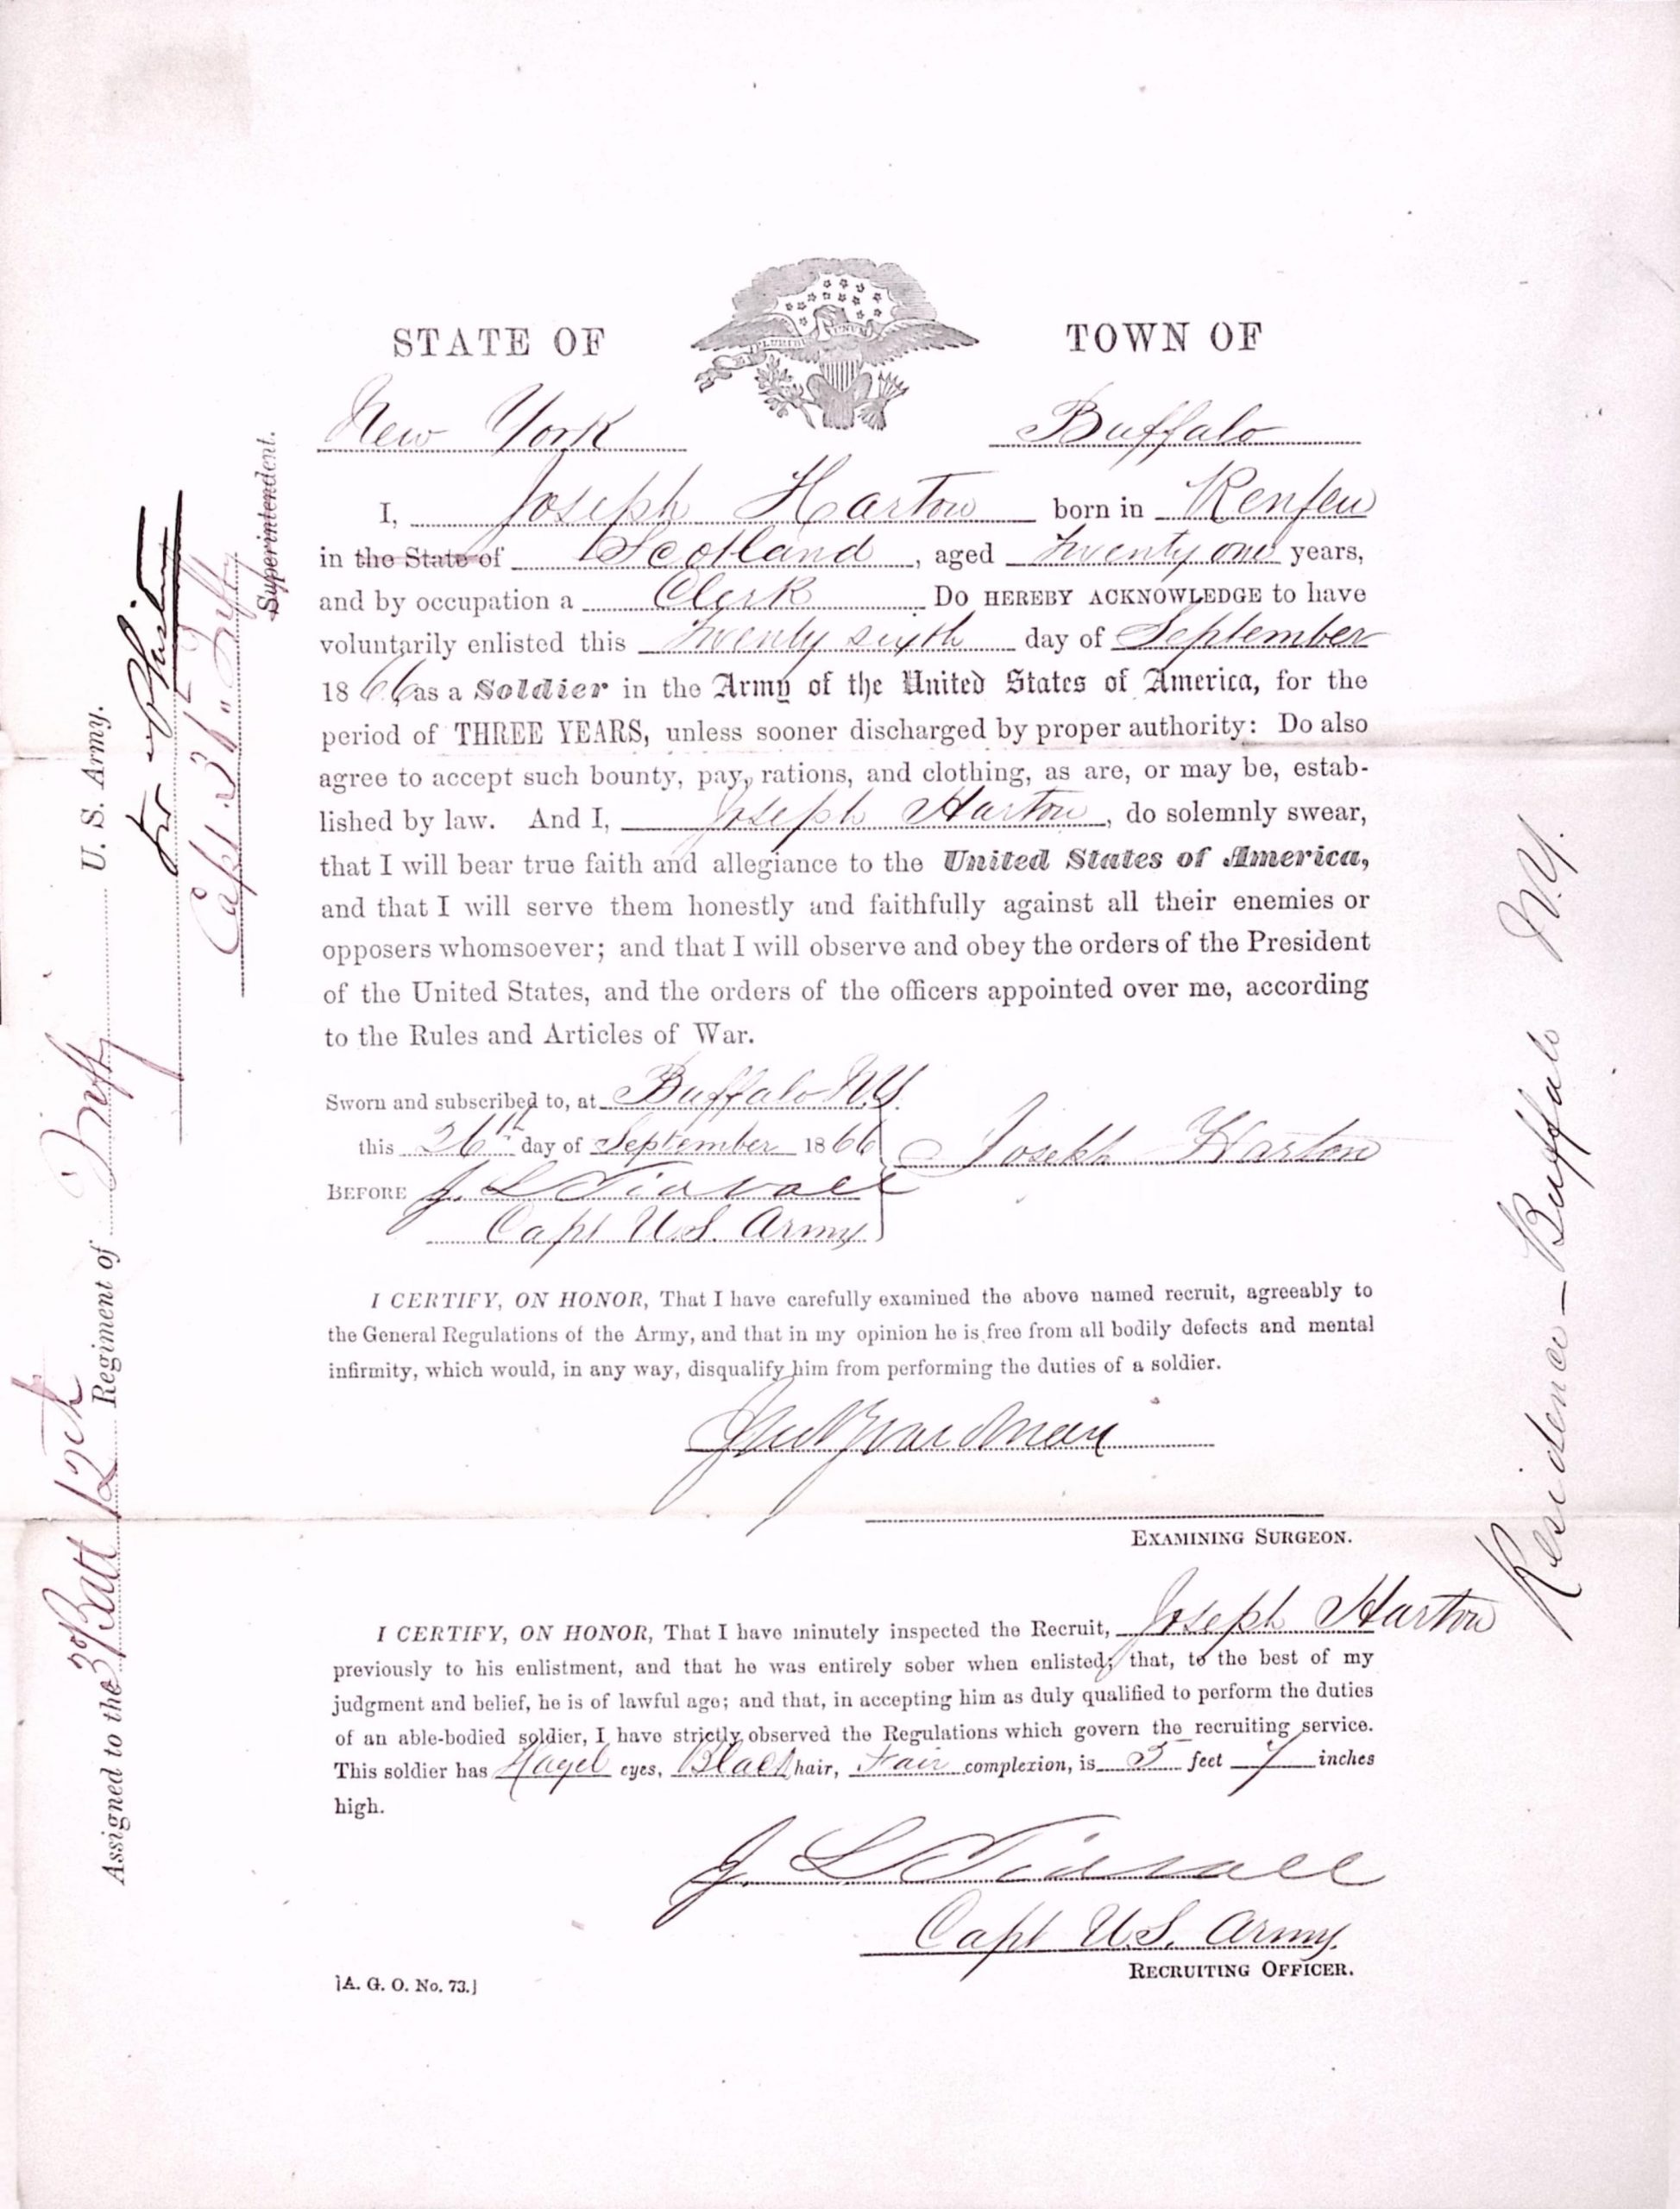 STATE OF
TOWN OF
E PLURIBUS UNUM
New York
Buffalo
I, Joseph Harton born in Renfew
in the State of Scotland, aged Twenty one years,
and by occupation a Clerk Do HEREBY ACKNOWLEDGE to have
voluntarily enlisted this Twenty sixth day of September
1866 as a Soldier in the Army of the United States of America, for the
period of THREE YEARS, unless sooner discharged by proper authority: Do also
agree to accept such bounty, pay, rations, and clothing, as are, or may be, estab-
lished by law. And I, Joseph Harton, do solemnly swear,
that I will bear true faith and allegiance to the United States of America,
and that I will serve them honestly and faithfully against all their enemies or
opposers whomsoever; and that I will observe and obey the orders of the President
of the United States, and the orders of the officers appointed over me, according
to the Rules and Articles of War.
Sworn and subscribed to, at Buffalo N.Y.
this 26th day of September 1866
Joseph Harton
BEFORE J. L. Tidball
Capt U.S. Army
I CERTIFY, ON HONOR, That I have carefully examined the above named recruit, agreeably to
the General Regulations of the Army, and that in my opinion he is free from all bodily defects and mental
infirmity, which would, in any way, disqualify him from performing the duties of a soldier.
EXAMINING SURGEON.
I CERTIFY, ON HONOR, That I have minutely inspected the Recruit, Joseph Harton
previously to his enlistment, and that he was entirely sober when enlisted; that, to the best of my
judgment and belief, he is of lawful age; and that, in accepting him as duly qualified to perform the duties
of an able-bodied soldier, I have strictly observed the Regulations which govern the recruiting service.
This soldier has Hazel eyes, Black hair, Fair complexion, is 5 feet 7 inches
high.
J. L. Tidball
Capt U.S. Army.
RECRUITING OFFICER.
[A. G. O. No. 73.]
Assigned to the 3d Batt 12th Regiment of Infty U. S. Army.
Capt 36" Infty
Superintendent.
Residence – Buffalo N.Y.